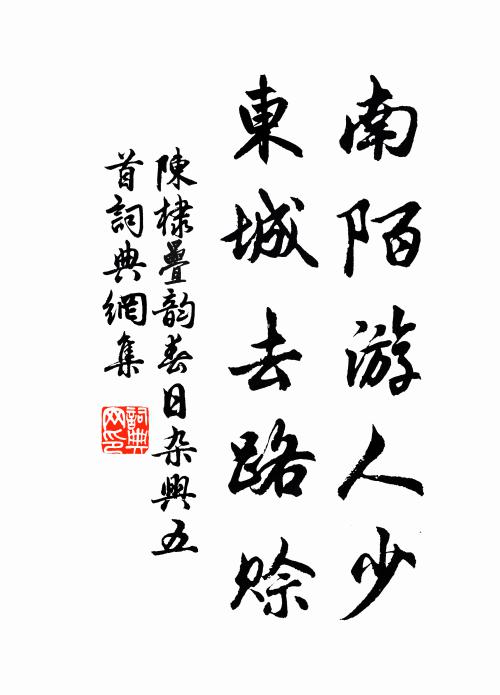 南陌游人少
東城去路賒
陳棣疊韵春日杂興五
首詞典網集
詞典网印